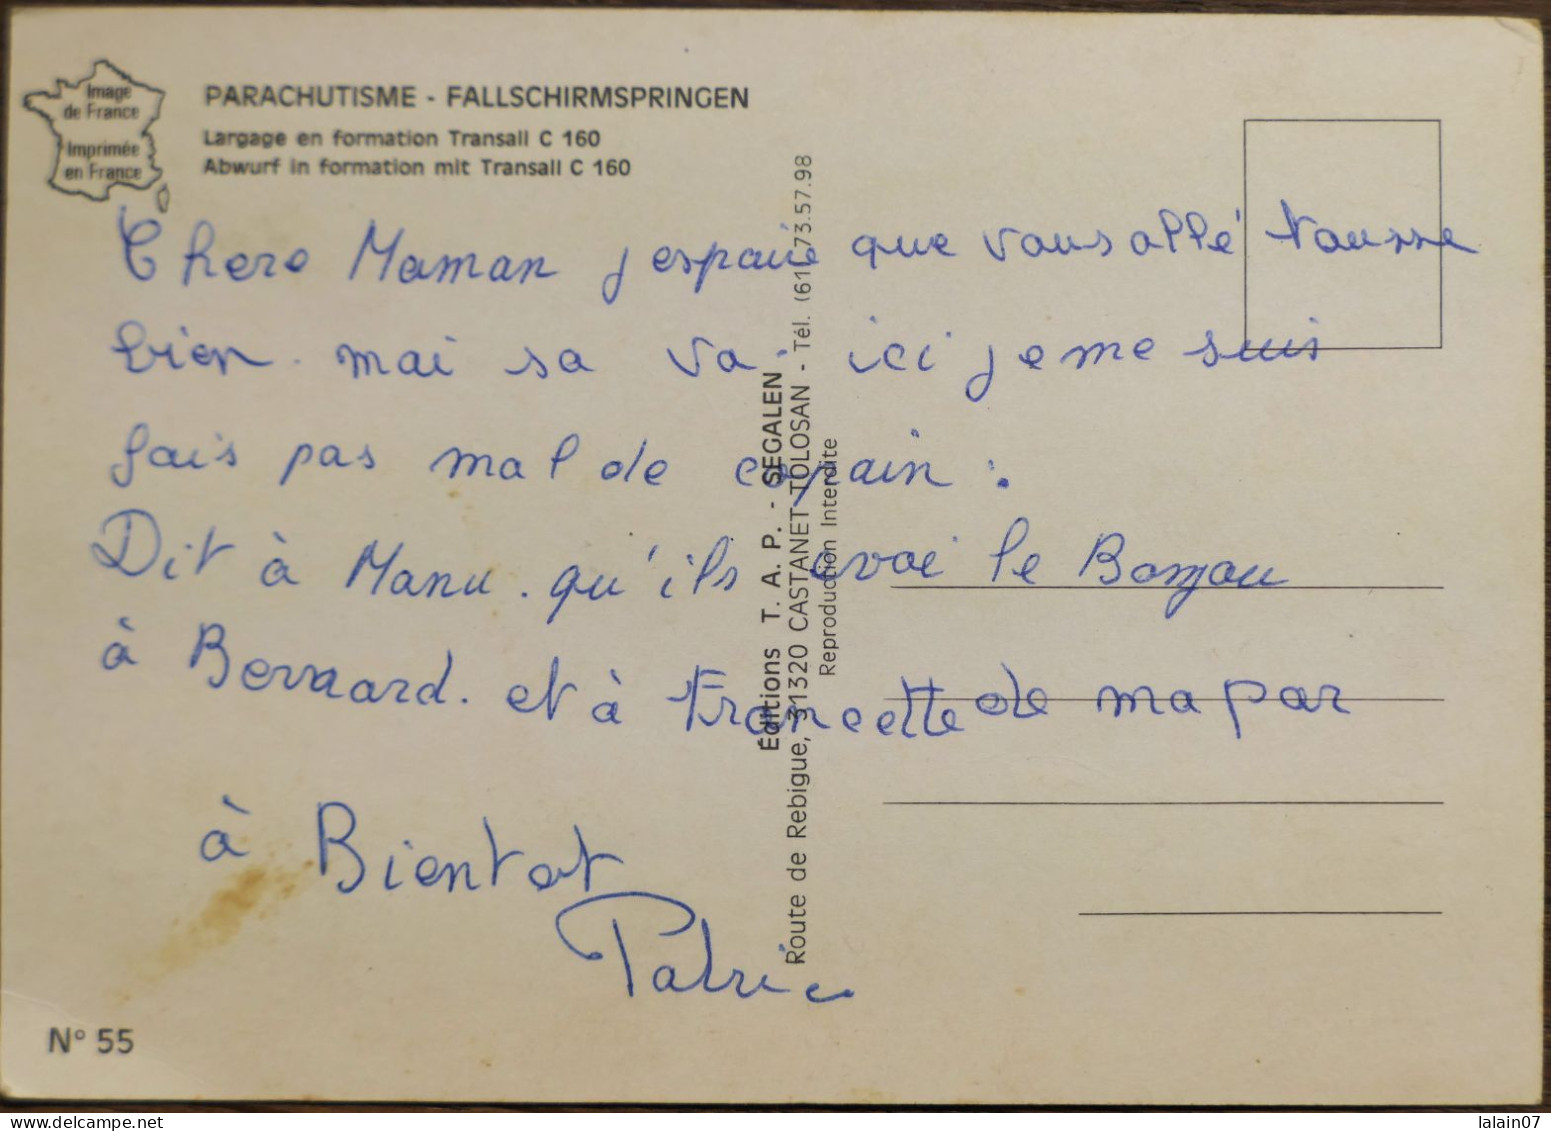 Image
de France
Imprimée
en France
PARACHUTISME - FALLSCHIRMSPRINGEN
Largage en formation Transall C 160
Abwurf in formation mit Transall C 160
Chere Maman j espaire que vous allé tousse
bien. mai sa va. ici je me suis
fais pas mal de copain.
Dit à Manu. qu'ils avoi le Bonjou
à Bernard. et à Francette de ma par
à Bientot
Patrice
Éditions T. A. P. - SEGALEN
Route de Rebigue, 31320 CASTANET TOLOSAN - Tél. (61) 73.57.98
Reproduction Interdite
N° 55
lalain07